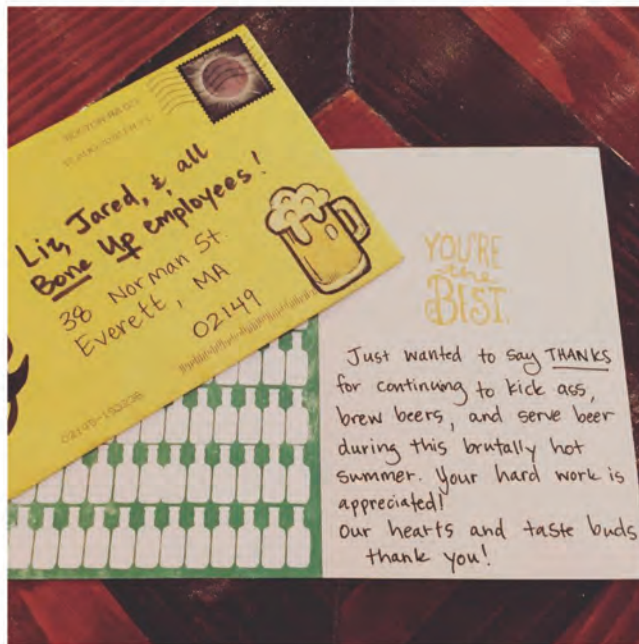 BOSTON MA 021
Liz, Jared, & all
Bone Up employees!
38 Norman St.
Everett, MA
02149
YOU'RE
the
BEST.
Just wanted to say THANKS
for continuing to kick ass,
brew beers, and serve beer
during this brutally hot
summer. Your hard work is
appreciated!
Our hearts and taste buds
thank you!